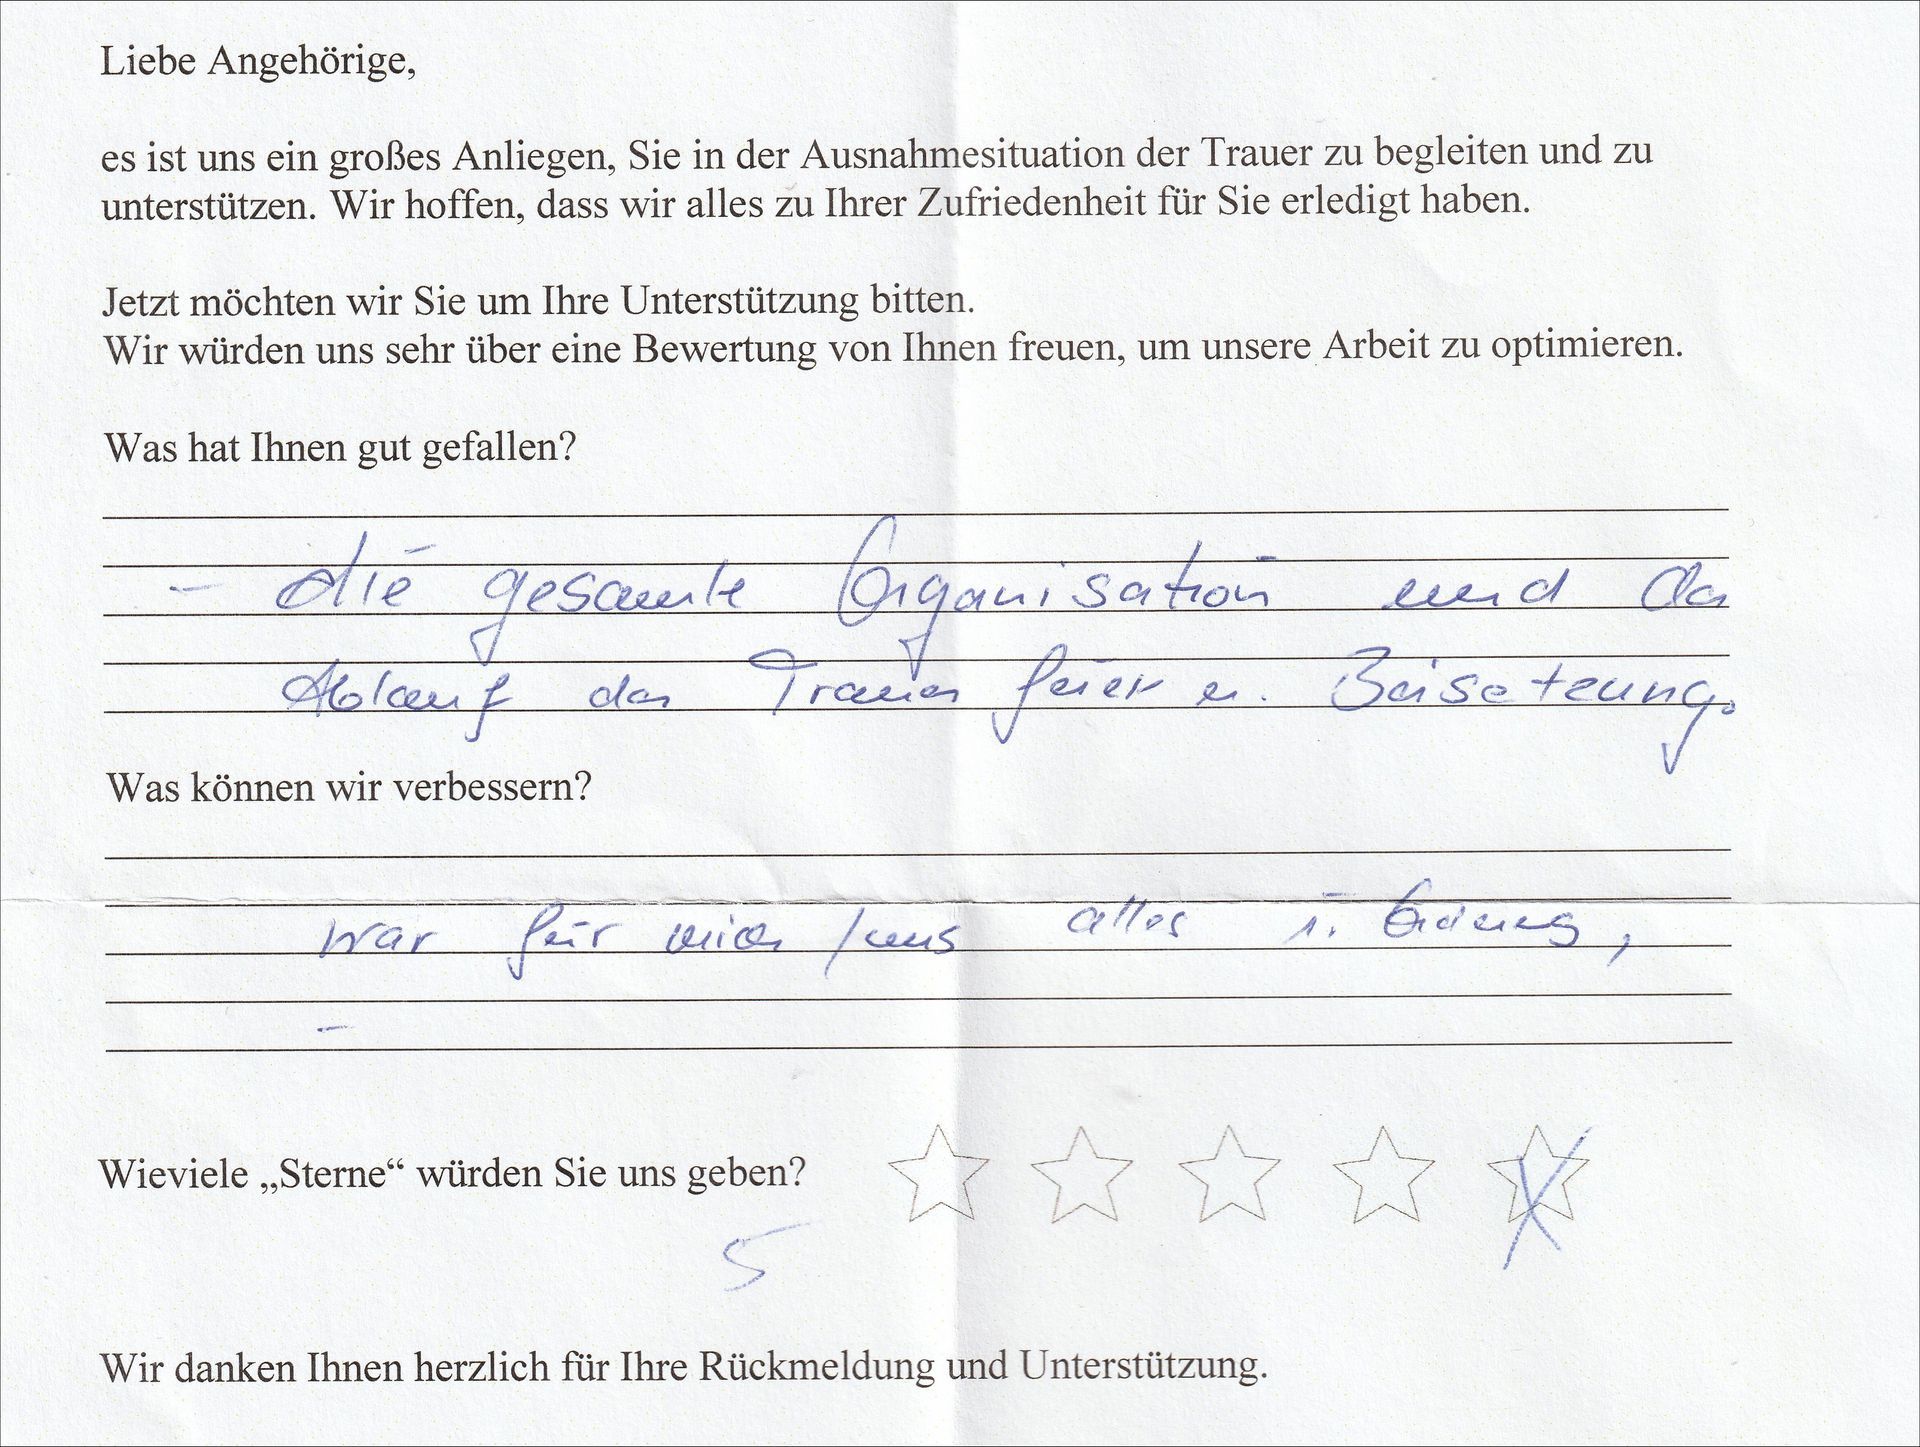 Liebe Angehörige,
es ist uns ein großes Anliegen, Sie in der Ausnahmesituation der Trauer zu begleiten und zu
unterstützen. Wir hoffen, dass wir alles zu Ihrer Zufriedenheit für Sie erledigt haben.
Jetzt möchten wir Sie um Ihre Unterstützung bitten.
Wir würden uns sehr über eine Bewertung von Ihnen freuen, um unsere Arbeit zu optimieren.
Was hat Ihnen gut gefallen?
- die gesamte Organisation und der
Ablauf der Trauerfeier u. Beisetzung.
Was können wir verbessern?
war für mich/uns alles i. Ordnung,
-
Wieviele „Sterne“ würden Sie uns geben?
5
Wir danken Ihnen herzlich für Ihre Rückmeldung und Unterstützung.